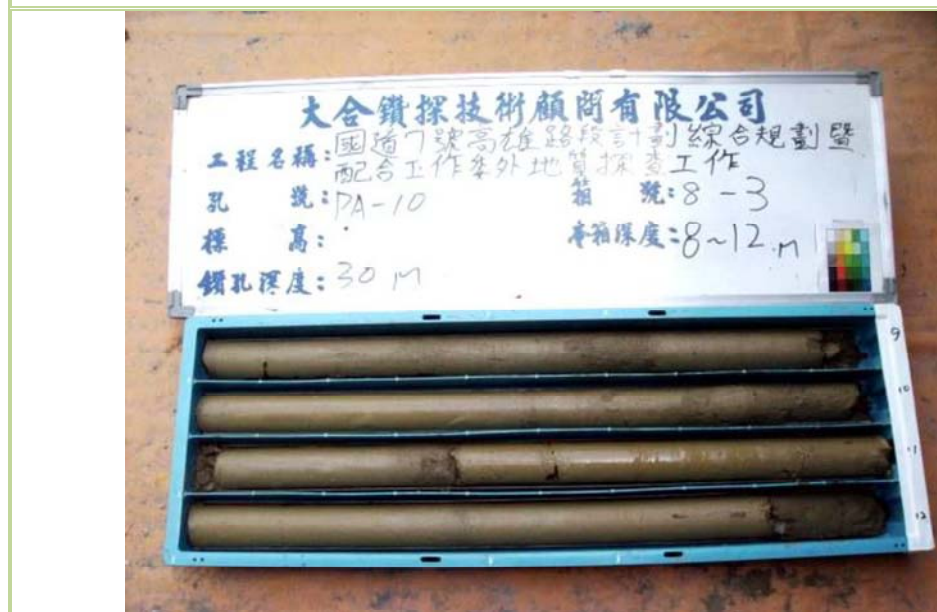 大合鑽探技術顧問有限公司
工程名稱:國道7號高雄路段計劃綜合規劃暨
配合工作委外地質探查工作
孔號:PA-10 箱號:8-3
標高:
本箱深度:8~12.m
鑽孔深度:30 M
9
10
11
12